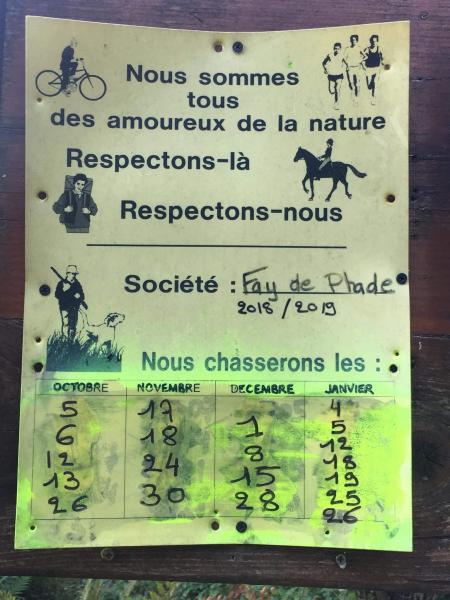 Nous sommes
tous
des amoureux de la nature
Respectons-là
Respectons-nous
Société : Fay de Phade
2018/2019
Nous chasserons les :
OCTOBRE NOVEMBRE DECEMBRE JANVIER
5 17 4
6 18 1 5
12 24 8 12
13 30 15 18
26 28 19
25
26